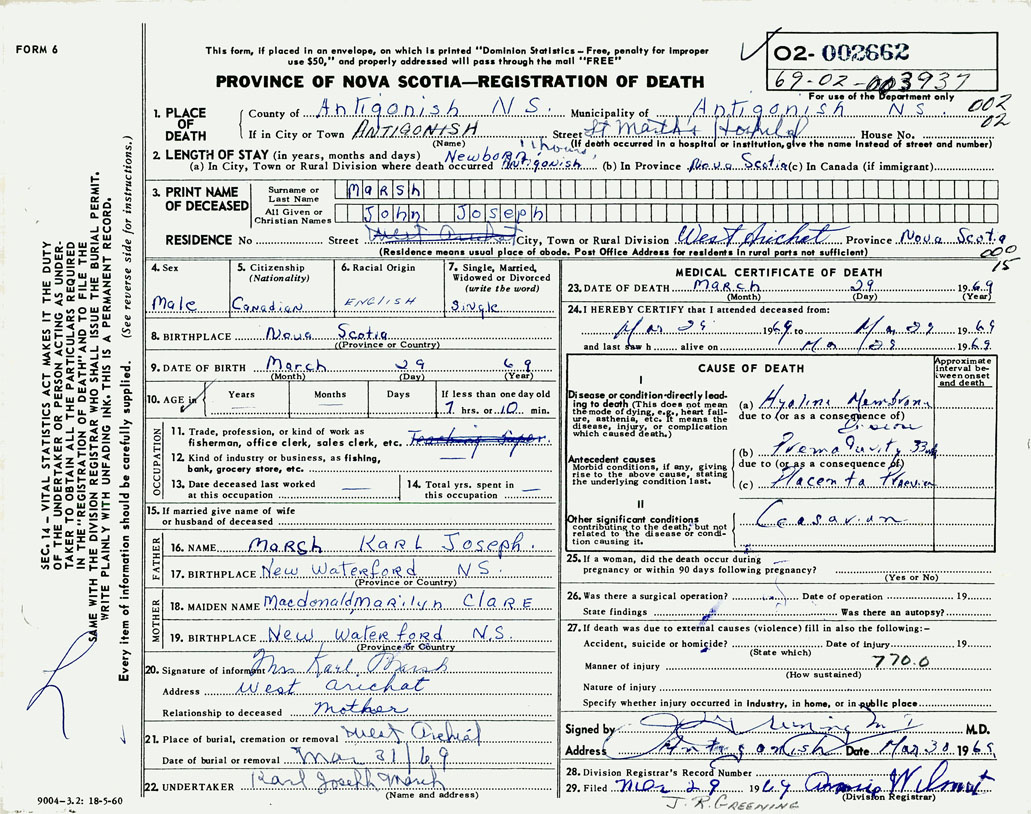 FORM 6
This form, if placed in an envelope, on which is printed "Dominion Statistics – Free, penalty for improper
use $50," and properly addressed will pass through the mail "FREE"
PROVINCE OF NOVA SCOTIA—REGISTRATION OF DEATH
02- 002662
69-02-003937
For use of the Department only
002
02
1. PLACE OF DEATH
County of Antigonish N S. Municipality of Antigonish NS.
If in City or Town ANTIGONISH Street St Martha's Hospital House No.
(Name) (If death occurred in a hospital or institution, give name instead of street and number)
11 hours
2. LENGTH OF STAY (in years, months and days) Newborn
(a) In City, Town or Rural Division where death occurred Antigonish (b) In Province Nova Scotia (c) In Canada (if immigrant)
3. PRINT NAME OF DECEASED
Surname or Last Name Marsh
All Given or Christian Names John Joseph
RESIDENCE No Street West Arichat City, Town or Rural Division West Arichat Province Nova Scotia
(Residence means usual place of abode. Post Office Address for residents in rural parts not sufficient)
000
15
4. Sex
Male
5. Citizenship
(Nationality)
Canadian
6. Racial Origin
ENGLISH
7. Single, Married, Widowed or Divorced
(write the word)
Single
8. BIRTHPLACE Nova Scotia
(Province or Country)
9. DATE OF BIRTH March 29 69
(Month) (Day) (Year)
10. AGE in
Years Months Days If less than one day old
7 hrs. or 10 min.
OCCUPATION
11. Trade, profession, or kind of work as
fisherman, office clerk, sales clerk, etc. Teaching Super.
12. Kind of industry or business, as fishing,
bank, grocery store, etc.
13. Date deceased last worked
at this occupation
14. Total yrs. spent in
this occupation
15. If married give name of wife
or husband of deceased
FATHER
16. NAME Marsh Karl Joseph.
17. BIRTHPLACE New Waterford N.S.
(Province or Country)
MOTHER
18. MAIDEN NAME Macdonald, Marilyn CLARE
19. BIRTHPLACE New Waterford N.S.
(Province or Country)
20. Signature of informant Mrs Karl Marsh
Address West Arichat
Relationship to deceased Mother
21. Place of burial, cremation or removal West Arichat
Date of burial or removal Mar 31/69
22. UNDERTAKER Karl Joseph Marsh
(Name and address)
9004-3.2: 18-5-60
MEDICAL CERTIFICATE OF DEATH
23. DATE OF DEATH March 29 1969
(Month) (Day) (Year)
24. I HEREBY CERTIFY that I attended deceased from:
Mar 29 1969 to Mar 29 1969
and last saw h alive on Mar 29 1969
CAUSE OF DEATH
Approximate interval between onset and death
I
Disease or condition directly leading to death (This does not mean
the mode of dying, e.g., heart failure, asthenia, etc. It means the
disease, injury, or complication which caused death.)
(a) Hyaline Membrane
due to (or as a consequence of)
Disease
Antecedent causes
Morbid conditions, if any, giving
rise to the above cause, stating
the underlying condition last.
(b) Prematurity 33wk
due to (or as a consequence of)
(c) Placenta Praevia
II
Other significant conditions
contributing to the death, but not
related to the disease or condition causing it.
Cesarian
25. If a woman, did the death occur during
pregnancy or within 90 days following pregnancy?
(Yes or No)
26. Was there a surgical operation? Date of operation 19
State findings Was there an autopsy?
27. If death was due to external causes (violence) fill in also the following:–
Accident, suicide or homicide? Date of injury 19
(State which)
Manner of injury 770.0
(How sustained)
Nature of injury
Specify whether injury occurred in Industry, in home, or in public place
Signed by M.D.
Address Antigonish Date Mar 30 1969
28. Division Registrar's Record Number
29. Filed Mar 29 1969 Annie Wilmot
(Division Registrar)
J. R. GREENING
SEC. 14 – VITAL STATISTICS ACT MAKES IT THE DUTY
OF THE UNDERTAKER OR PERSON ACTING AS UNDERTAKER TO OBTAIN ALL THE PARTICULARS REQUIRED
IN THE "REGISTRATION OF DEATH" AND TO FILE THE
SAME WITH THE DIVISION REGISTRAR WHO SHALL ISSUE THE BURIAL PERMIT.
WRITE PLAINLY WITH UNFADING INK. THIS IS A PERMANENT RECORD.
Every item of information should be carefully supplied. (See reverse side for instructions.)